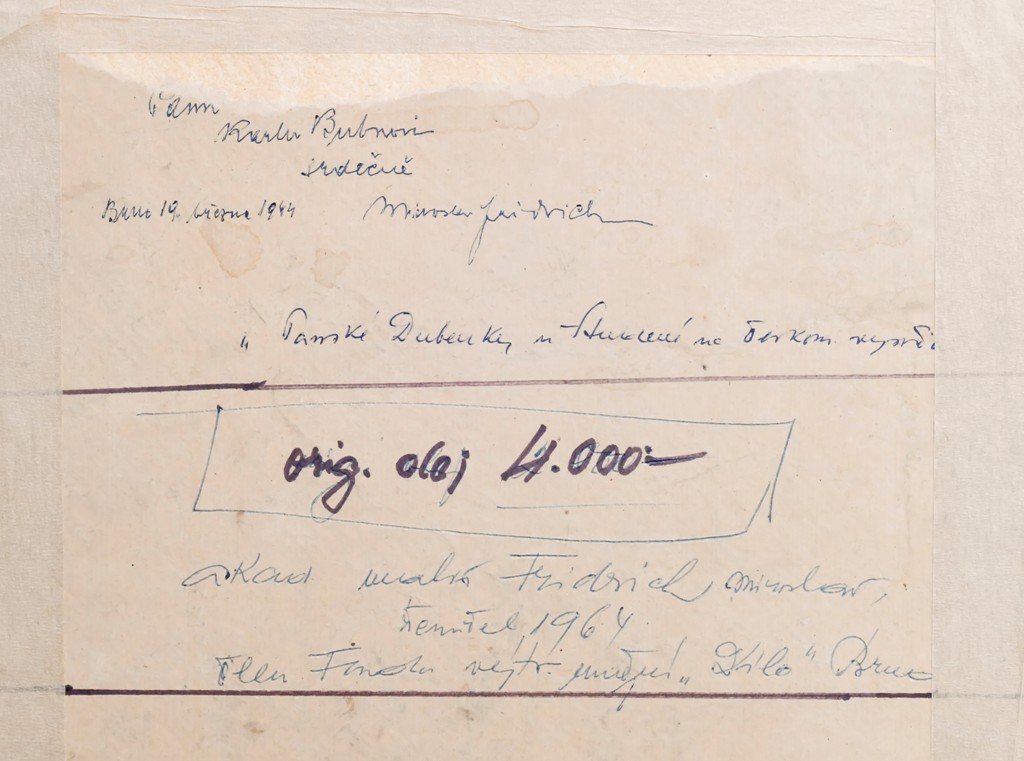 Panu
Karlu Bubnovi
srdečně
Brno 19. března 1944 Miroslav Fridrich
„ Panské Dubenky u Studené na Českom.
orig. olej 4.000:—
akad. malíř Fridrich Miroslav,
zemřel 1964.
Člen Fondu výtv. umění „Dílo“ Brno